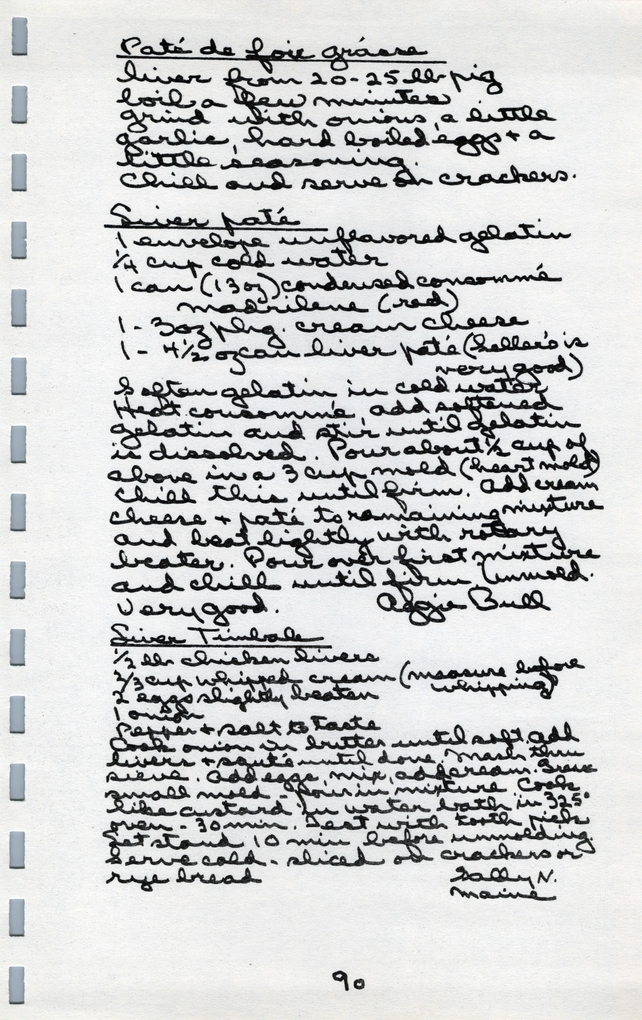 Paté de foie grásse
liver from 20-25 lb pig
boil a few minutes
grind with onions, a little
garlic, hard boiled eggs + a
little seasoning.
Chill and serve on crackers.
Liver paté
1 envelope unflavored gelatin
1/4 cup cold water
1 can (13 oz) condensed consommé
madrilene (red)
1 - 3oz pkg. cream cheese
1 - 4 1/2 oz can liver paté (Seller's is
very good)
Soften gelatin in cold water
Heat consommé, add softened
gelatin and stir until gelatin
is dissolved. Pour about 1/2 cup of
above in a 3 cup mold (heart mold)
Chill this until firm. Add cream
cheese + paté to remaining mixture
and beat lightly with rotary
beater. Pour over first mixture
and chill until firm. Unmold.
Very good. Aggie Bull
Liver Timbale
1/2 lb chicken livers
2/3 cup whipped cream (measure before
whipping)
2 eggs slightly beaten
1 onion
Pepper + salt to taste
Cook onion in butter until soft, add
livers + sauté until done. Mash thru
sieve. Add eggs, mix, add cream.
small mold - pour in mixture Cook
like custard in water bath in 325°
oven - 30 min. Test with tooth pick
Let stand 10 min before unmolding.
Serve cold - sliced on crackers or
rye bread Sally N.
Maine
90